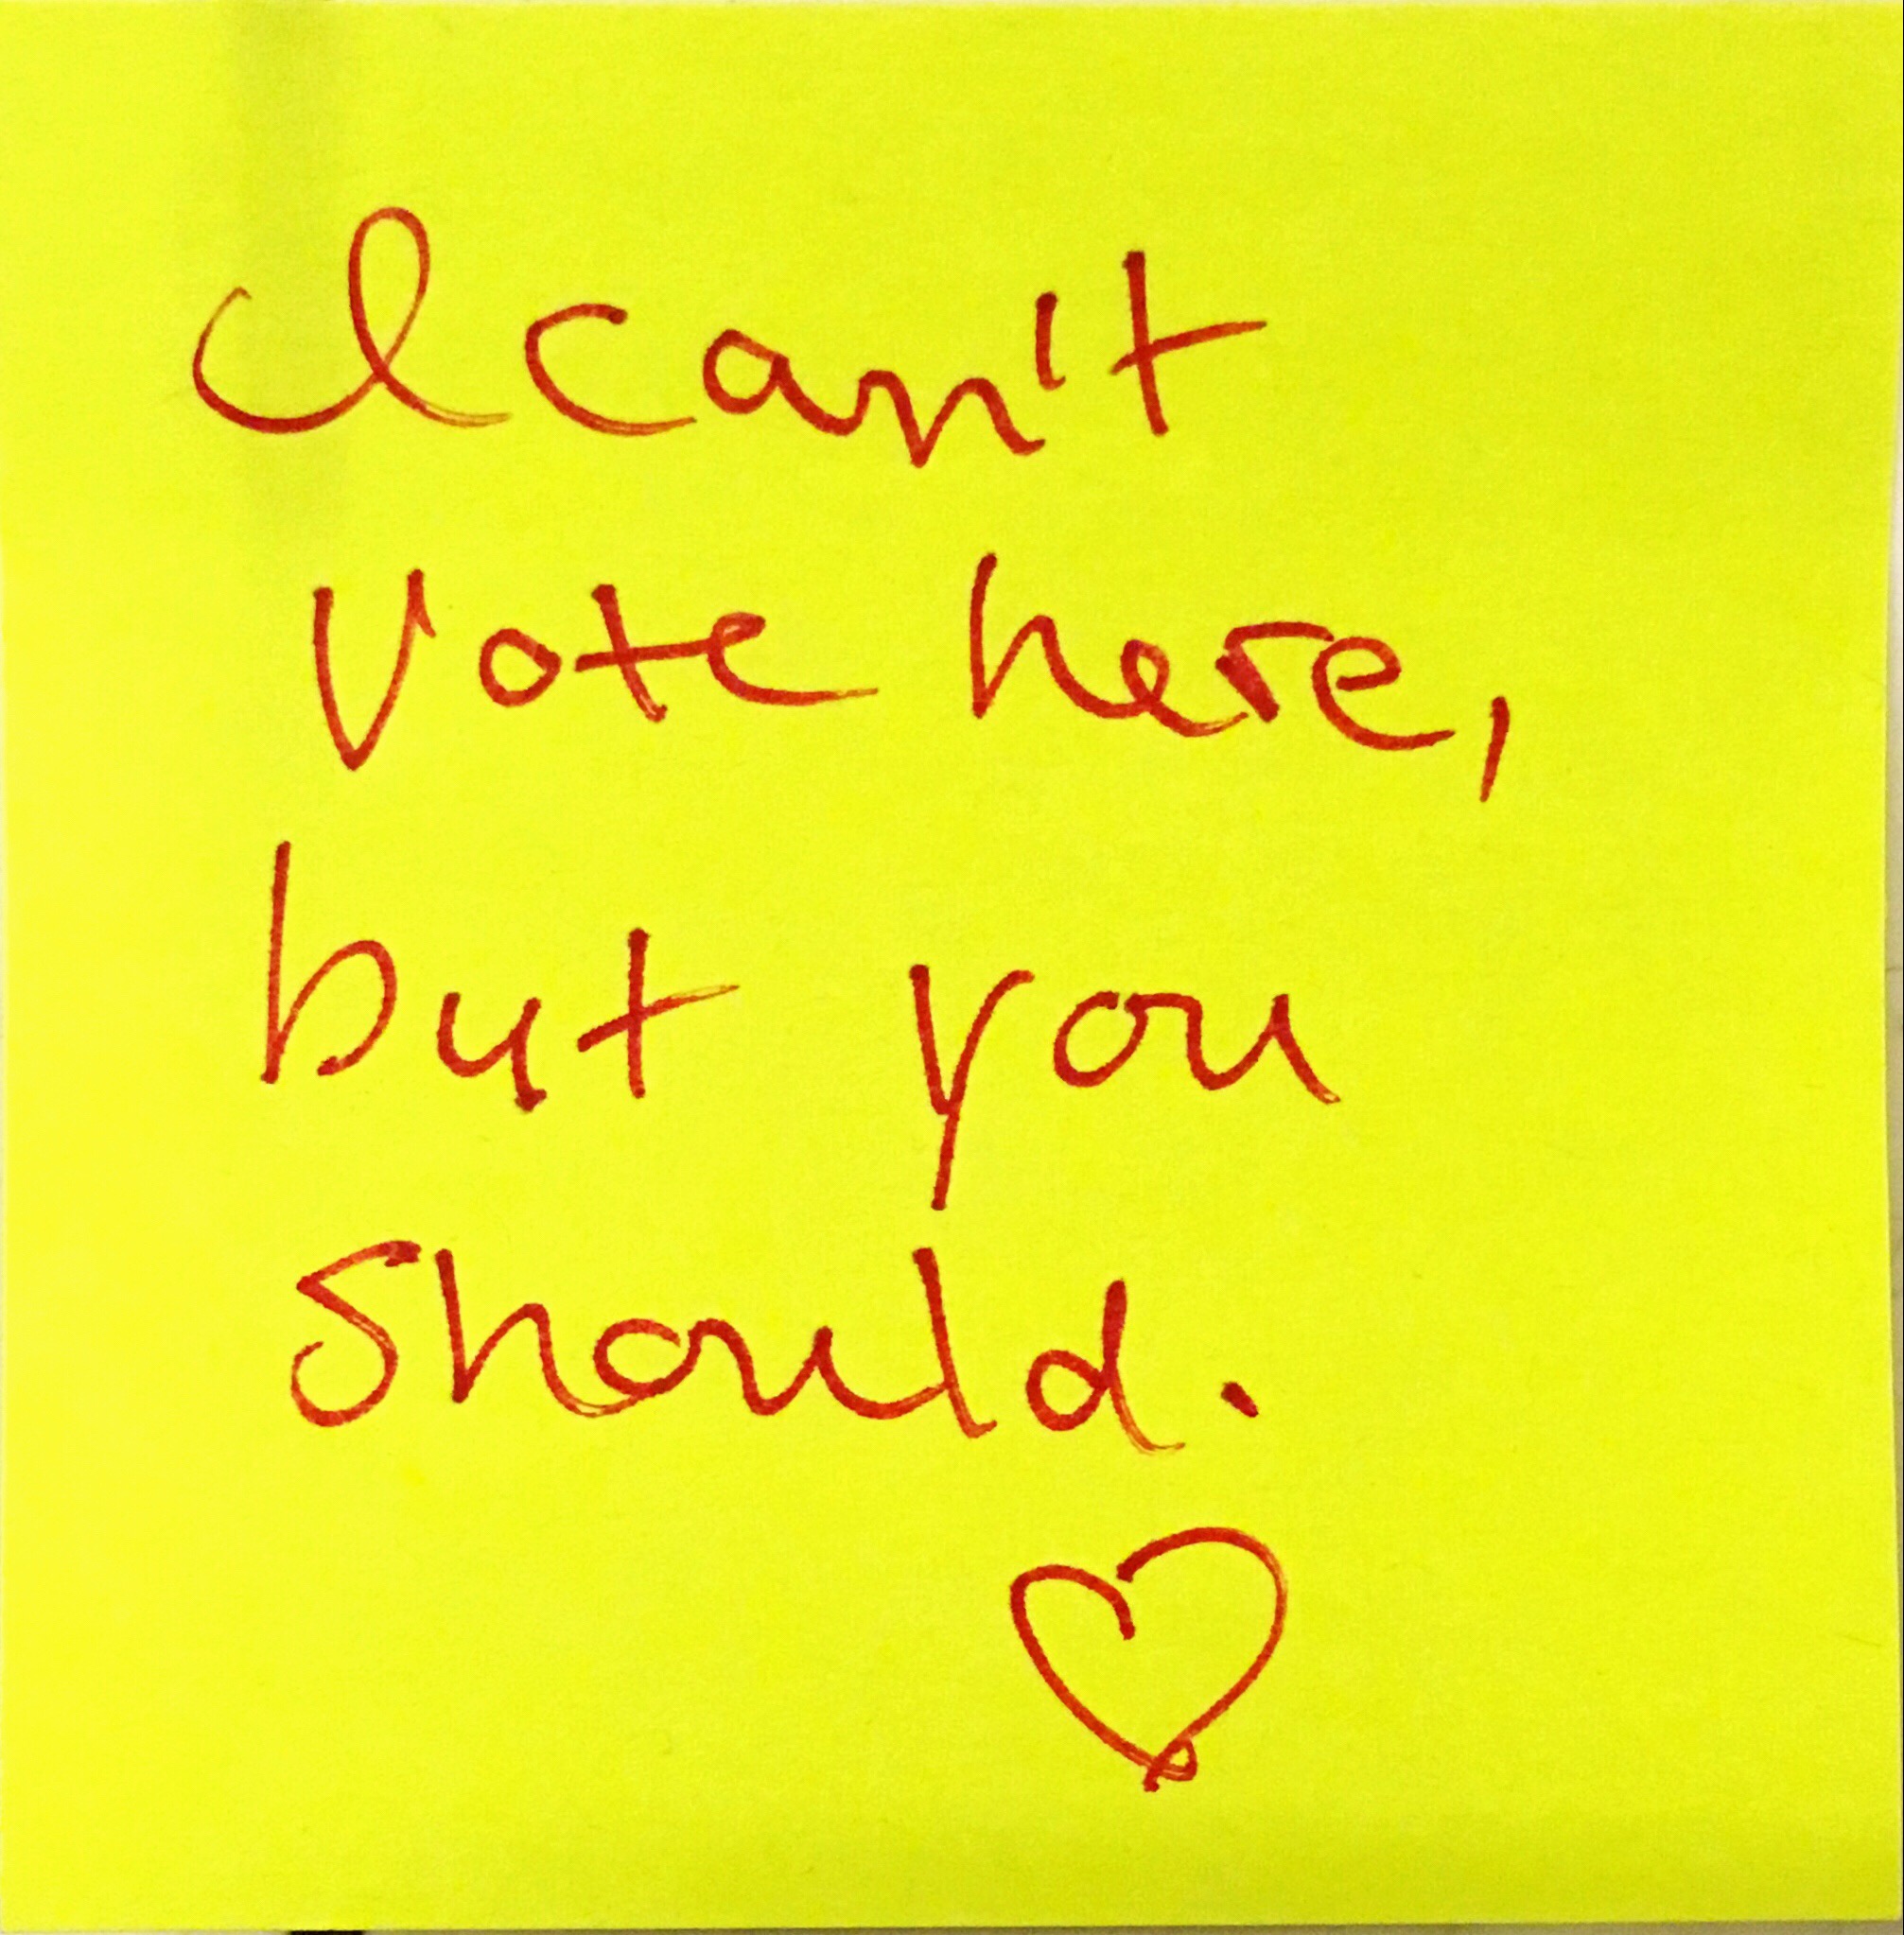 I can't
vote here,
but you
should.